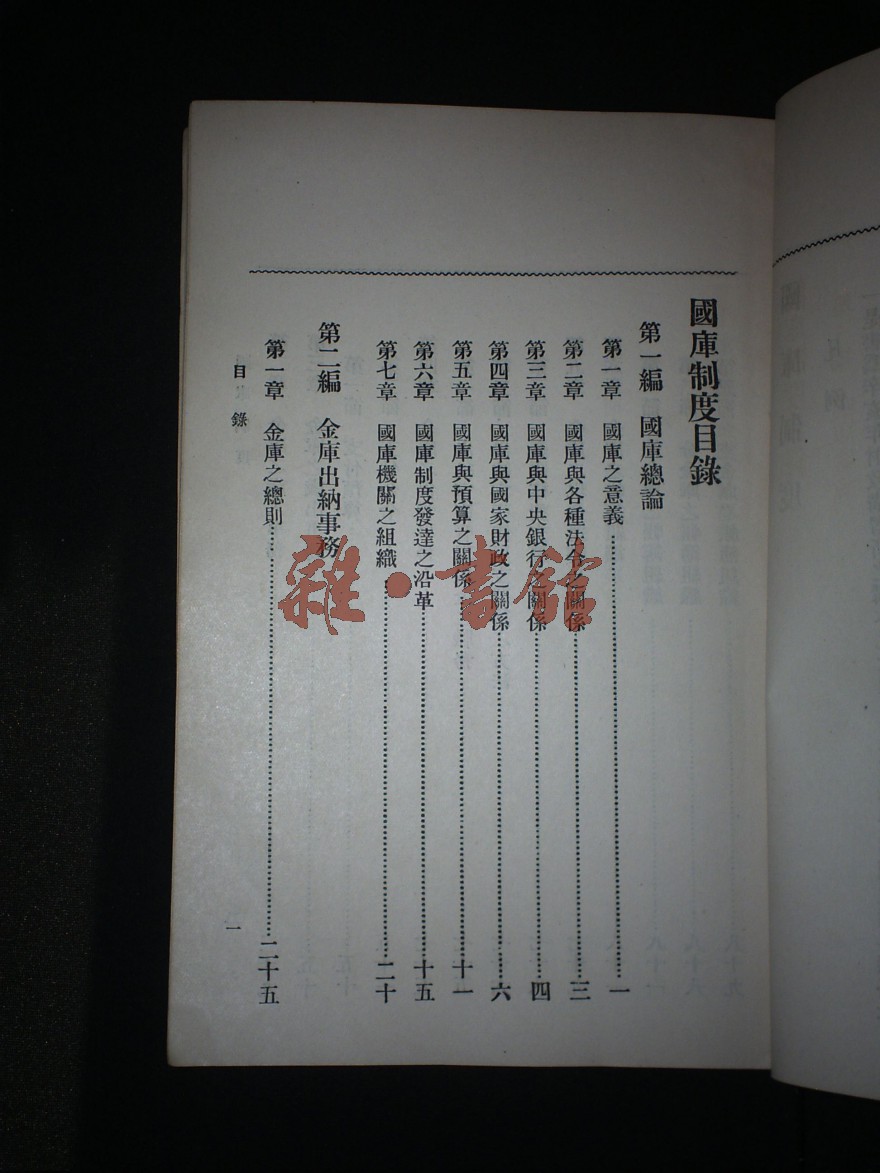 國庫制度目錄
第一編 國庫總論
第一章 國庫之意義……一
第二章 國庫與各種法令之關係……三
第三章 國庫與中央銀行之關係……四
第四章 國庫與國家財政之關係……六
第五章 國庫與預算之關係……十一
第六章 國庫制度發達之沿革……十五
第七章 國庫機關之組織……二十
第二編 金庫出納事務
第一章 金庫之總則……二十五
目錄
一
雜·書館